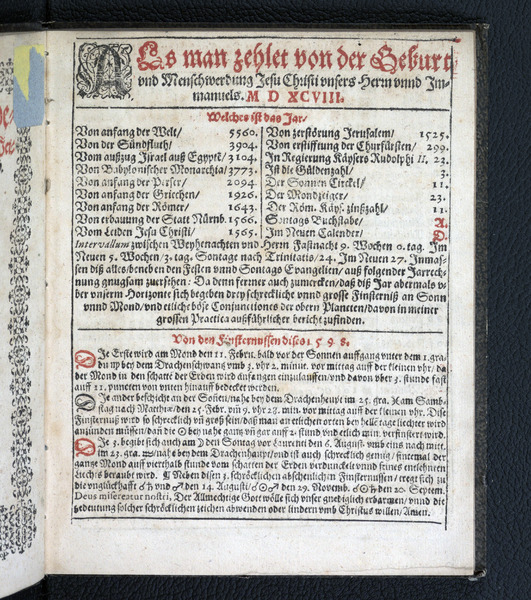 Als man zehlet von der Geburt
vnd Menschwerdung Jesu Christi vnsers Herrn vnnd Jm-
manuels. M D XCVIII.
Welches ist das Jar/
Von anfang der Welt/ 5560.
Von der Sündfluth/ 3904.
Vom außzug Jsrael auß Egypte/ 3104.
Von Babylonischer Monarchia/ 3773.
Von anfang der Perser/ 2094
Von anfang der Griechen/ 1926.
Von anfang der Römer/ 1643.
Von erbauung der Statt Nürnb. 1566.
Vom Leiden Jesu Christi/ 1565.
Von zerstörung Jerusalem/ 1525.
Von erstifftung der Churfürsten/ 299.
Jn Regierung Käysers Rudolphi II. 23.
Jst die Güldenzahl/ 3.
Der Sonnen Circkel/ 11.
Der Mondzeiger/ 23.
Der Röm. Käys. zinßzahl/ 11.
Sontags Buchstabe/ A.
Jm Neuen Calender/ D.
Intervallum zwischen Weyhenachten vnd Herrn Fastnacht 9. Wochen 0. tag. Jm
Neuen 5. Wochen/ 3. tag. Sontage nach Trinitatis/ 24. Jm Neuen 27. Jnmas-
sen diß alles/ beneben den Festen vnnd Sontags Evangelien/ auß folgender Jarrech-
nung gnugsam zuersehen: Da denn ferner auch zumercken/ daß diß Jar abermals v-
ber vnserm Horizonte sich begeben drey schreckliche vnnd grosse Finsterniß an Sonn
vnnd Mond/ vnd etliche böse Conjunctiones der obern Planeten/ davon in meiner
grossen Practica außführlicher bericht zufinden.
Von den Finsternussen dises 1598.
Die Erste wird am Mond den 11. Febru. bald vor der Sonnen auffgang vnter dem 1. gra-
du ♍ bey dem Drachenschwantz vmb 5. vhr 2. minut. vor mittag auff der kleinen vhr/ da
der Mond in den schatten der Erden wird anfangen einzulauffen/ vnd davon vber 3. stunde fast
auff 12. puncten von vnten hinauff bedecket werden.
Die ander beschicht an der Sonnen/ nahe bey dem Drachenheupt im 25. gra. ♓ am Samb-
stag nach Matthiæ/ den 25. Febr. vm 9. vhr 28. min. vor mittag auff der kleinen vhr. Dise
Finsternuß wird so schrecklich vñ groß sein/ daß man an etlichen orten bey helle tage liechter wird
anzünden müssen/ dañ die ☉ bey nahe gantz vñ gar auff 2. stund vnd etlich min. verfinstert wird.
Die 3. begibt sich auch am ☽ den Sontag vor Laurenti den 6. August. vmb eins nach mitt.
im 23. gra. ♒/ nahe bey dem Drachenhaupt/ vnd ist auch schrecklich gentig/ sintemal der
gantze Mond auff vierthalb stunde vom schatten der Erden verdunckelt vnnd seines entlehneten
liechts beraubt wird. ¶ Neben disen 3. schröcklichen abschenlichen Finsternussen/ tregt sich zu
Deus misereatur nostri. Der Allmechtige Gott wölle sich vnser gnediglich erbarmen/ vnnd die
bedeutung solcher schröcklichen zeichen abwenden oder lindern vmb Christus willen/ Amen.